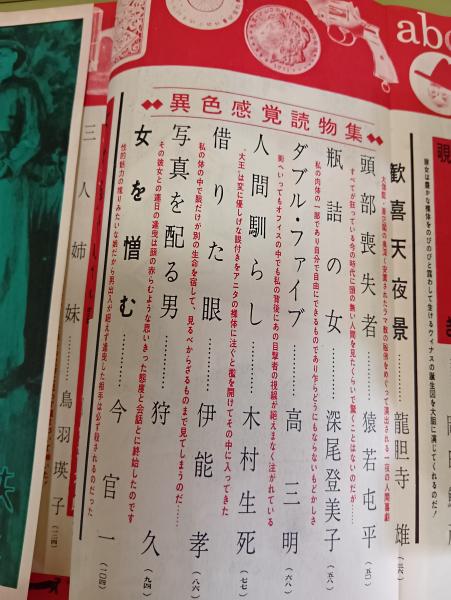 abc
異色感覚読物集
歓喜天夜景………龍胆寺 雄(三六)
頭部喪失者………猿若屯平(五〇)
すべてが狂っている今の時代に頭の無い人間を見たくらいで驚くことはないのだが……
瓶詰の女………深尾登美子(五八)
私の肉体の一部であり自分で自由にできるものであり乍らどうにもならないもどかしさ
ダブル・ファイブ………高三明(六八)
街へいってもオフィスの中でも私の背後にあの目撃者の視線が絶えまなく注がれている
人間馴らし………木村生死(七七)
"大王"は変に優しげな談付きをアニタの裸体に注ぐと檻を開けてその中に入ってきた
借りた眼………伊能 孝(八六)
私の体の中で眼だけが別の生命を宿して、見るべからざるものまで見てしまうのだ……
写真を配る男………狩 久(九四)
その彼女との連日の逢曳は顔の赤らむような思いきった態度と会話とに終始したのです
女を憎む………今官一(一〇四)
性的魅力の塊りみたいな娘だから男出入が絶えず逢曳した相手は必ず殺されるのだった
三人姉妹………鳥羽瑛子(一二四)
彼女は豊かな裸体をのびのびと露わして生けるヴィナスの誕生図を大胆に演じてくれるのだ!